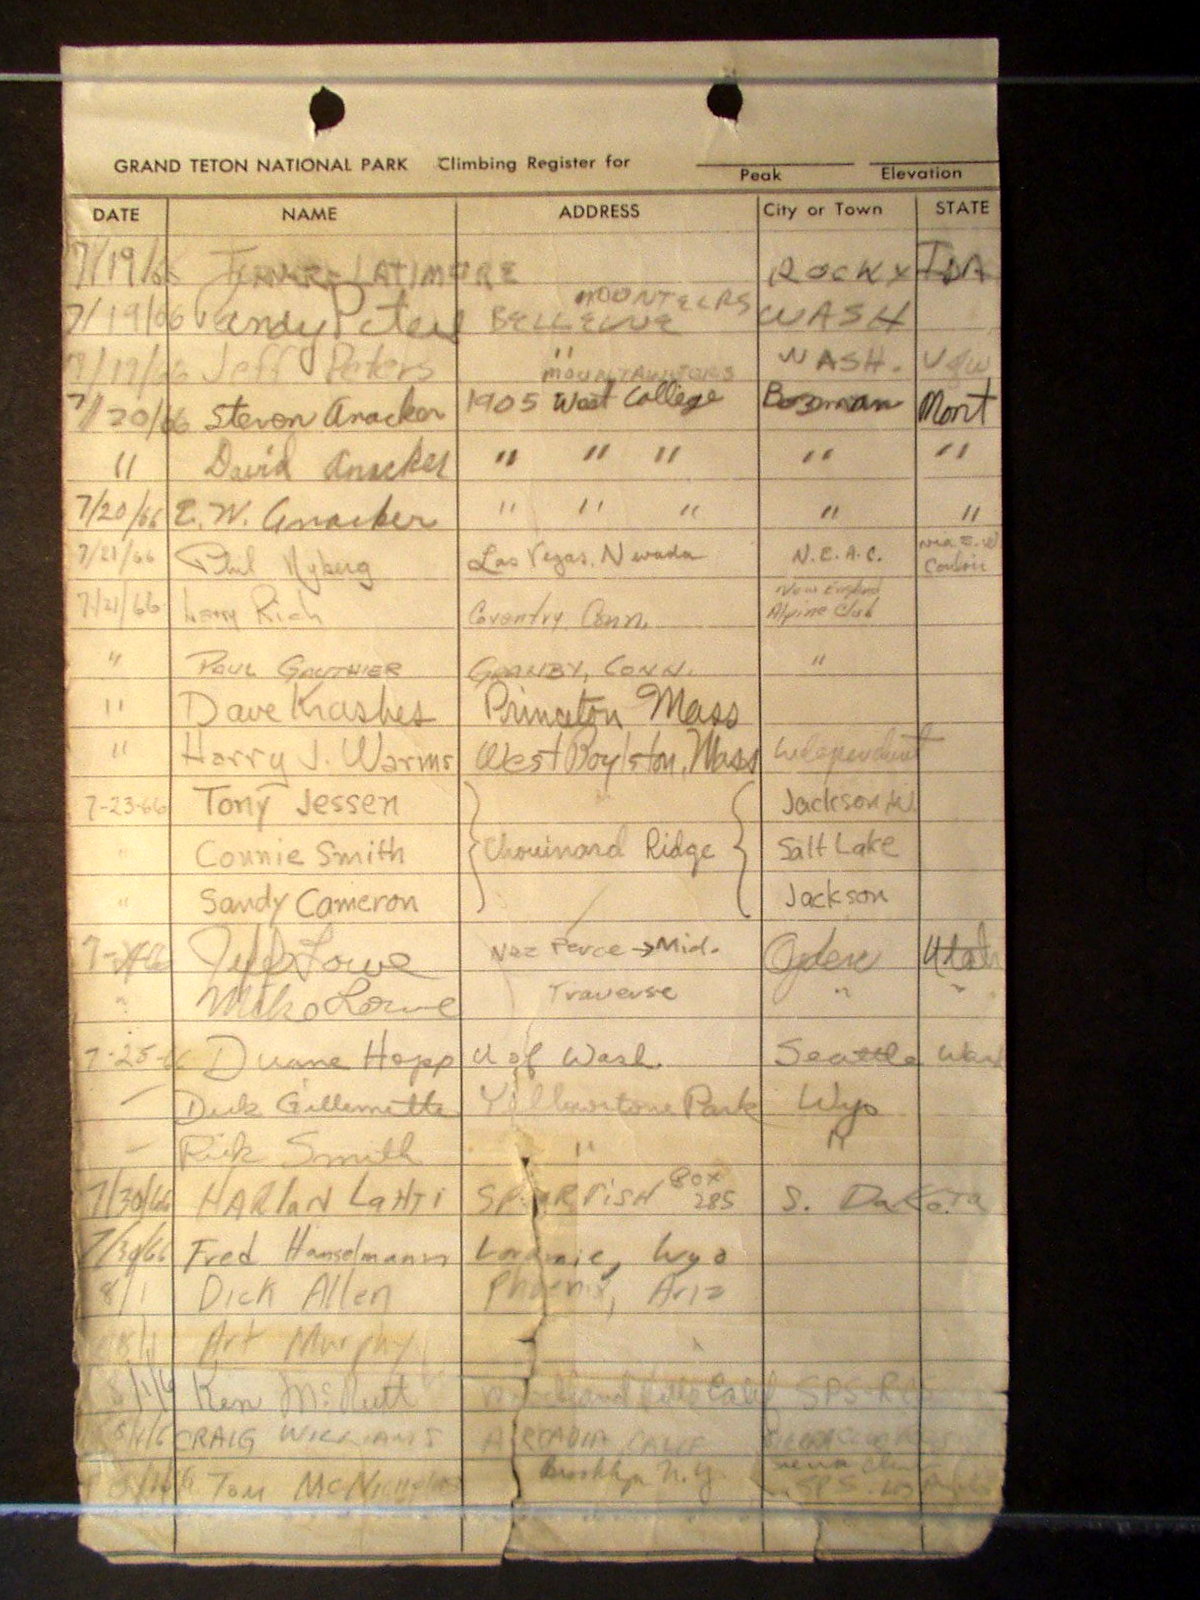 GRAND TETON NATIONAL PARK Climbing Register for
Peak Elevation
DATE NAME ADDRESS City or Town STATE
7/19/66 LATIMORE ROCKY IDA
7/19/66 Peters BELLEVUE WASH
7/19/66 Jeff Peters " MOUNTAINEERS WASH.
7/20/66 Steven Anacker 1905 West College Bozeman Mont
" David Anacker " " " " "
7/20/66 E. W. Anacker " " " " "
7/21/66 Phil Nyberg Las Vegas, Nevada N.E.A.C. via
7/21/66 Larry Rich Coventry Conn. New England Alpine Club
" PAUL GAUTHIER GRANBY, CONN. "
" Dave Krashes Princeton Mass
" Harry J. Warms West Boylston, Mass Independent
7-23-66 Tony Jessen Jackson W
" Connie Smith } Chouinard Ridge { Salt Lake
" Sandy Cameron Jackson
Jeff Lowe Nez Perce → Mid. Ogden Utah
" Mike Lowe Traverse " "
7-25-66 Duane Hopp U of Wash. Seattle Wash
Dick Gillemette Yellowstone Park Wyo
Rick Smith " "
7/30/66 HARlAN LaHTi SPEARFiSH Box 285 S. DaKota
7/30/66 Fred Hanselmann Laramie, Wyo
8/1 Dick Allen Phoenix, Ariz
8/1 Art Murphy
8/1/6 Ken McNutt Woodland Hills Calif SPS-RCS
CRAIG WILLIAMS ARCADIA CALIF
Tom McNicholas Brooklyn N.Y. SPS